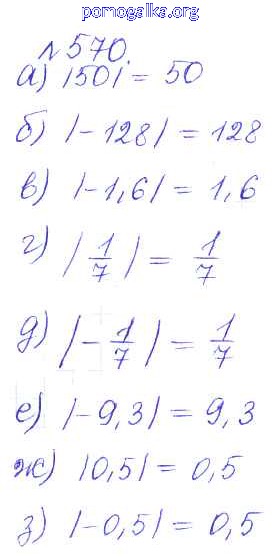 pomogalka.org
№570.
а) |50| = 50
б) |-128| = 128
в) |-1,6| = 1,6
г) |1/7| = 1/7
д) |-1/7| = 1/7
е) |-9,3| = 9,3
ж) |0,5| = 0,5
з) |-0,5| = 0,5